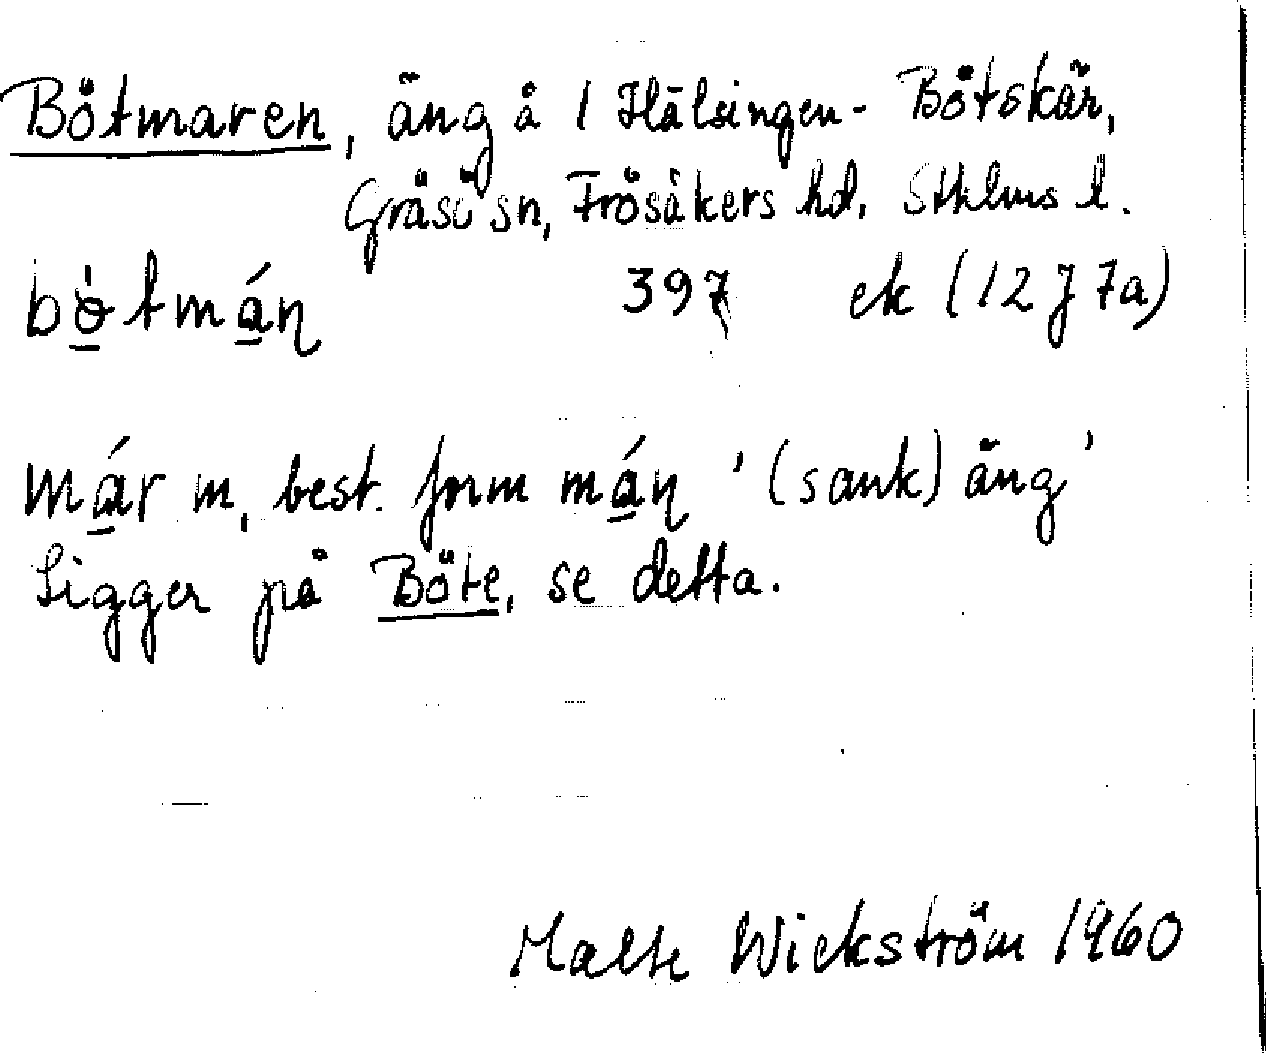 Bötmaren, äng å 1 Hälsingen- Bötskär,
Gräsö sn, Frösåkers hd. Sthlms l.
bö̀tmáɳ 397 ek (12J7a)
már m, best. form máɳ '(sank) äng'
Ligger på Böte, se detta.
Malte Wickström 1960